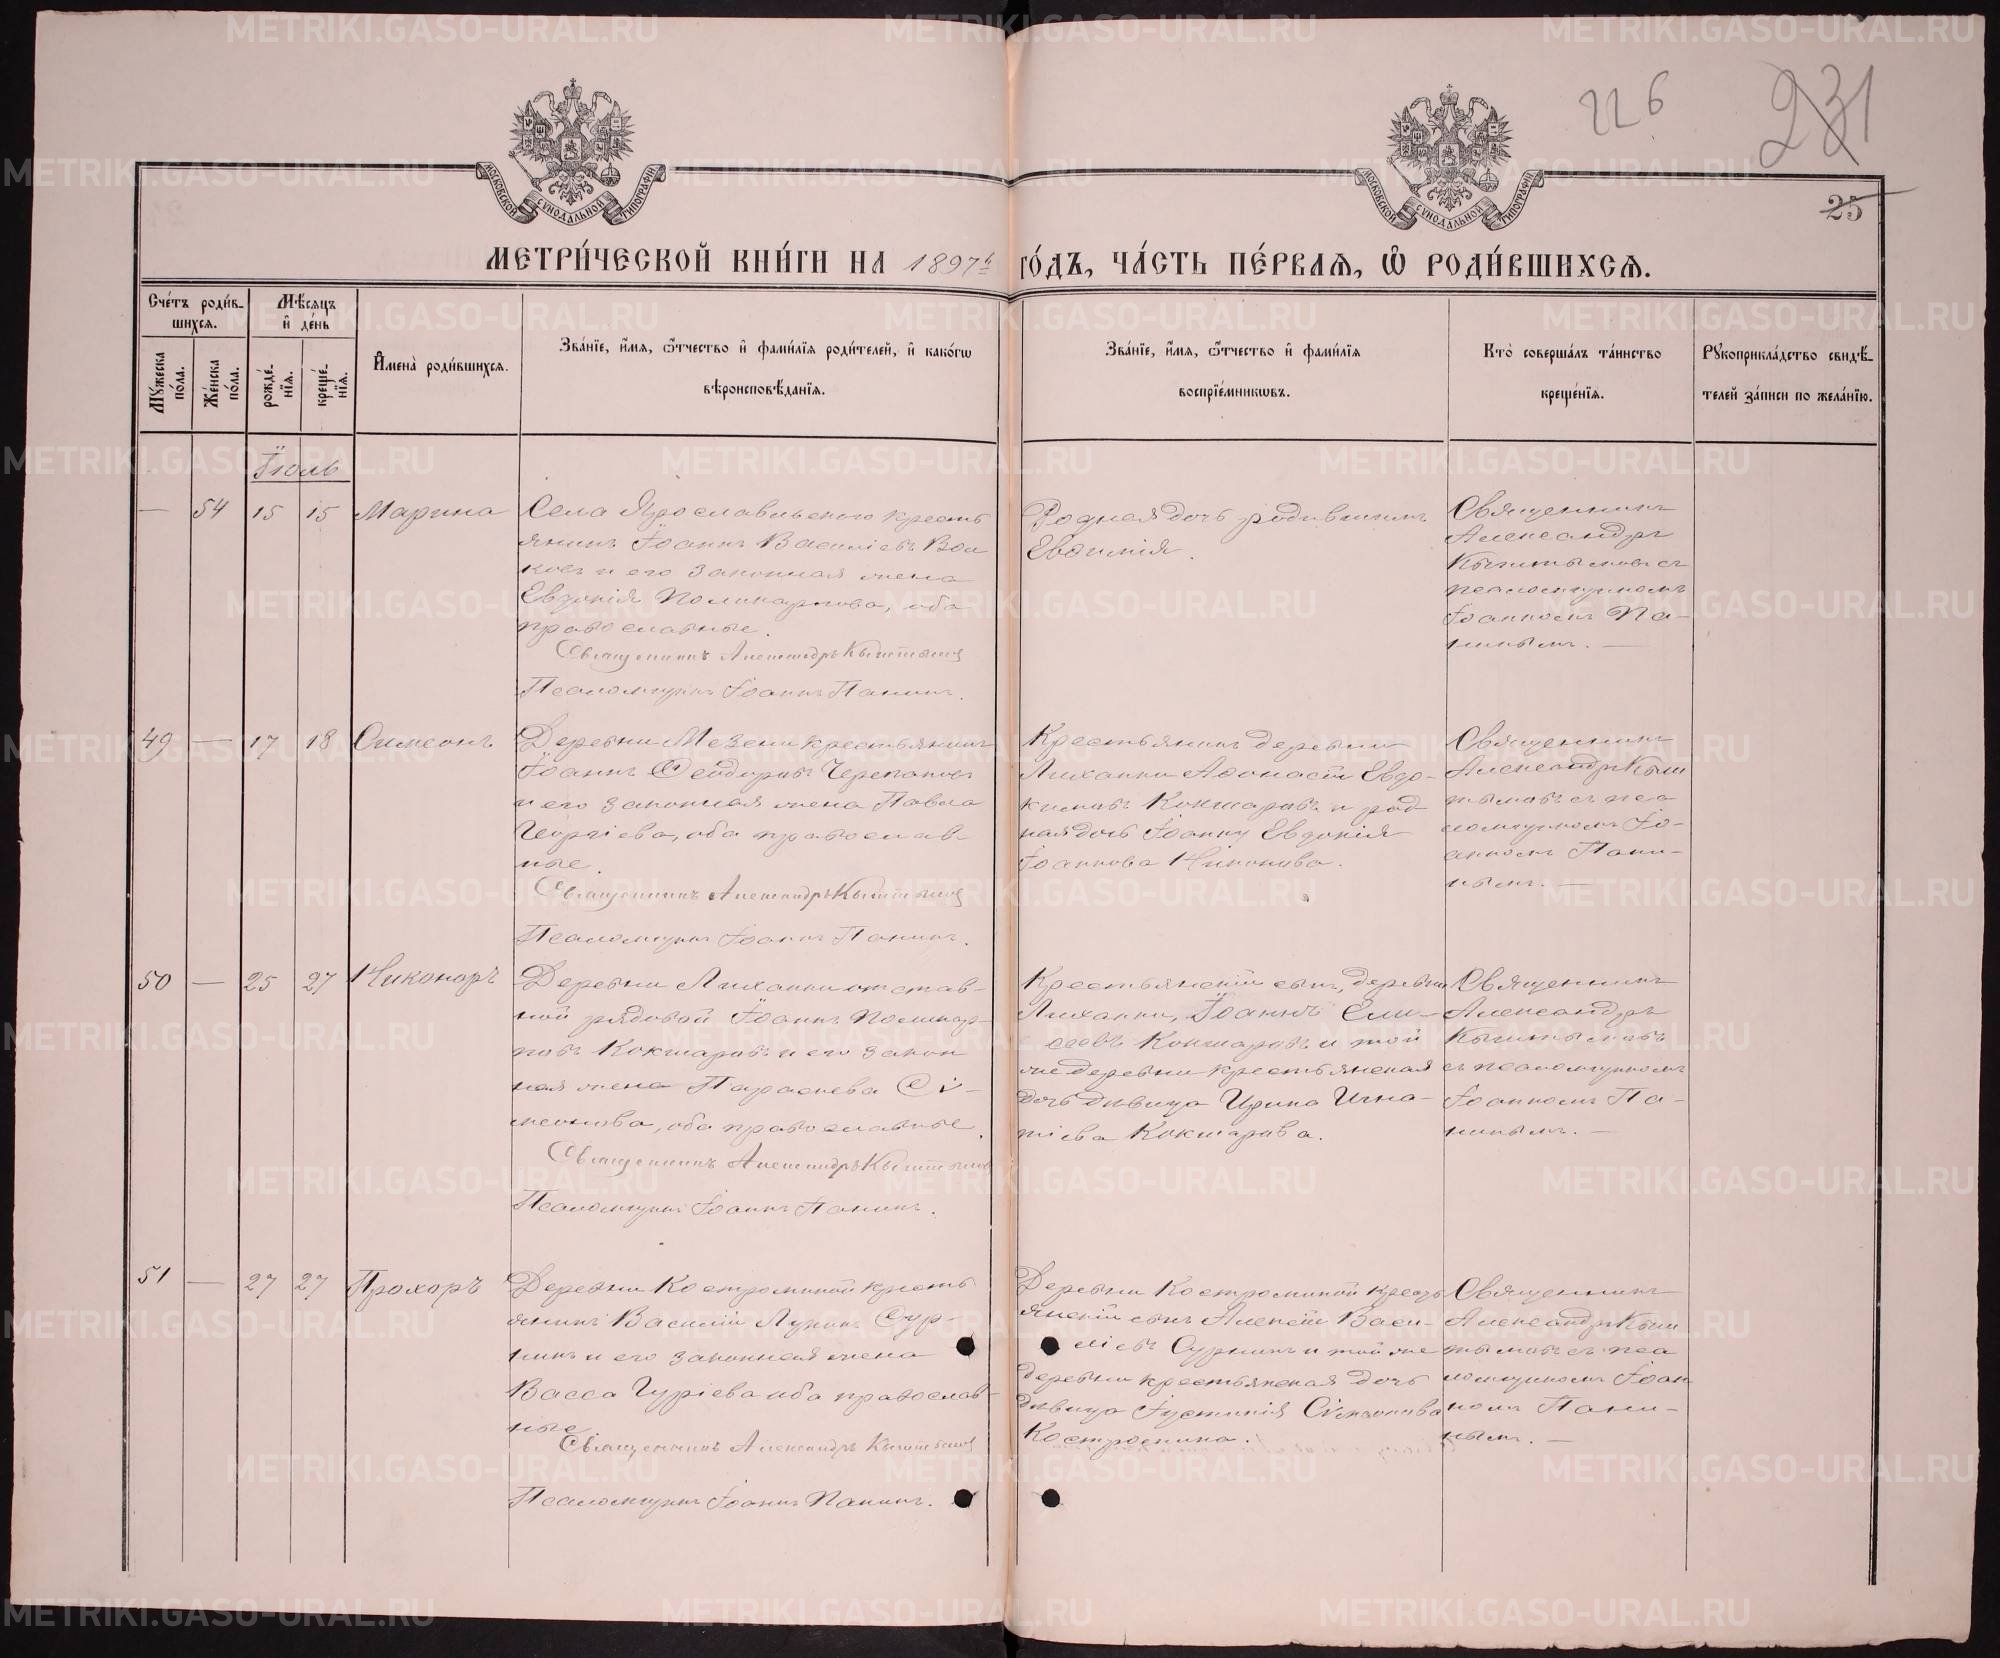 226
231
25
МОСКОВСКОЙ СѴНОДАЛЬНОЙ ТИПОГРАФІИ
МОСКОВСКОЙ СѴНОДАЛЬНОЙ ТИПОГРАФІИ
МЕТРИ́ЧЕСКОЙ КНИ́ГИ НА 1897й ГО́ДЪ, ЧА́СТЬ ПЕ́РВАЯ, Ѡ РОДИ́ВШИХСЯ.
Сче́тъ роди́в-
шихся.
Мꙋжеска по́ла.
Же́нска по́ла.
Мѣ́сяцъ
и де́нь
рожде́-
нїя.
креще́-
нїя.
Имена̀ роди́вшихся.
Зва́нїе, и́мя, ѻ́тчество и фами́лїя роди́телей, и како́гѡ
вѣроисповѣ́данїя.
Зва́нїе, и́мя, ѻ́тчество и фами́лїя
воспрїе́мникѡвъ.
Кто̀ соверша́лъ та́инство
креще́нїя.
Рꙋкоприкла́дство свидѣ́-
телей за́писи по жела́нїю.
Іюль
— 54 15 15 Марина
Села Ярославскаго кресть
янинъ Іоаннъ Василіевъ Вол
ковъ и его законная жена
Евдокія Поликарпова, оба
православные.
Священникъ Александръ Кыштымов
Псаломщикъ Іоаннъ Панинъ.
Родная дочь родившимъ
Евфимія.
Священникъ
Александръ
Кыштымовъ съ
псаломщикомъ
Іоанномъ Па-
нинымъ. —
49 — 17 18 Симеонъ
Деревни Мезени крестьянинъ
Іоаннъ Ѳеодоровъ Черепановъ
и его законная жена Павла
Георгіева, оба православ-
ные.
Священникъ Александръ Кыштымов
Псаломщикъ Іоаннъ Панинъ.
Крестьянинъ деревни
Лиханки Аѳонасій Евдо-
кимовъ Кокшаровъ и род
ная дочь Іоанну Евдокія
Іоаннова Никонова.
Священникъ
Александръ Кыш
тымовъ съ пса
ломщикомъ Іо-
анномъ Пани-
нымъ. —
50 — 25 27 Никоноръ
Деревни Лиханки отстав-
ной рядовой Іоаннъ Поликар-
повъ Кокшаровъ и его закон
ная жена Параскева Сѵ-
меонова, оба православные.
Священникъ Александръ Кыштымов
Псаломщикъ Іоаннъ Панинъ.
Крестьянскій сынъ, деревни
Лиханки, Іоаннъ Ели-
сеевъ Кокшаровъ и той
же деревни крестьянская
дочь дѣвица Ирина Игна-
тіева Кокшарова.
Священникъ
Александръ
Кыштымовъ
съ псаломщикомъ
Іоанномъ Па-
нинымъ. —
51 — 27 27 Прохоръ
Деревни Костроминой кресть
янинъ Василій Лукинъ Сур-
нинъ и его законная жена
Васса Гуріева оба православ-
ные.
Священникъ Александръ Кыштымов
Псаломщикъ Іоаннъ Панинъ.
Деревни Костроминой кресть
янскій сынъ Алексій Васи-
ліевъ Сурнинъ и той же
деревни крестьянская дочь
дѣвица Іустинія Сѵмеонова
Костромина.
Священникъ
Александръ Кыш
тымовъ съ пса
ломщикомъ Іоан
номъ Пани-
нымъ. —
METRIKI.GASO-URAL.RU